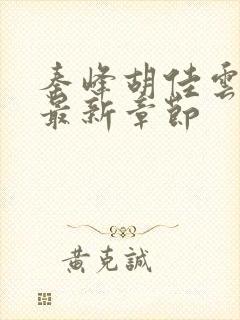 秦峰胡佳雲
最新章節
黃克誠